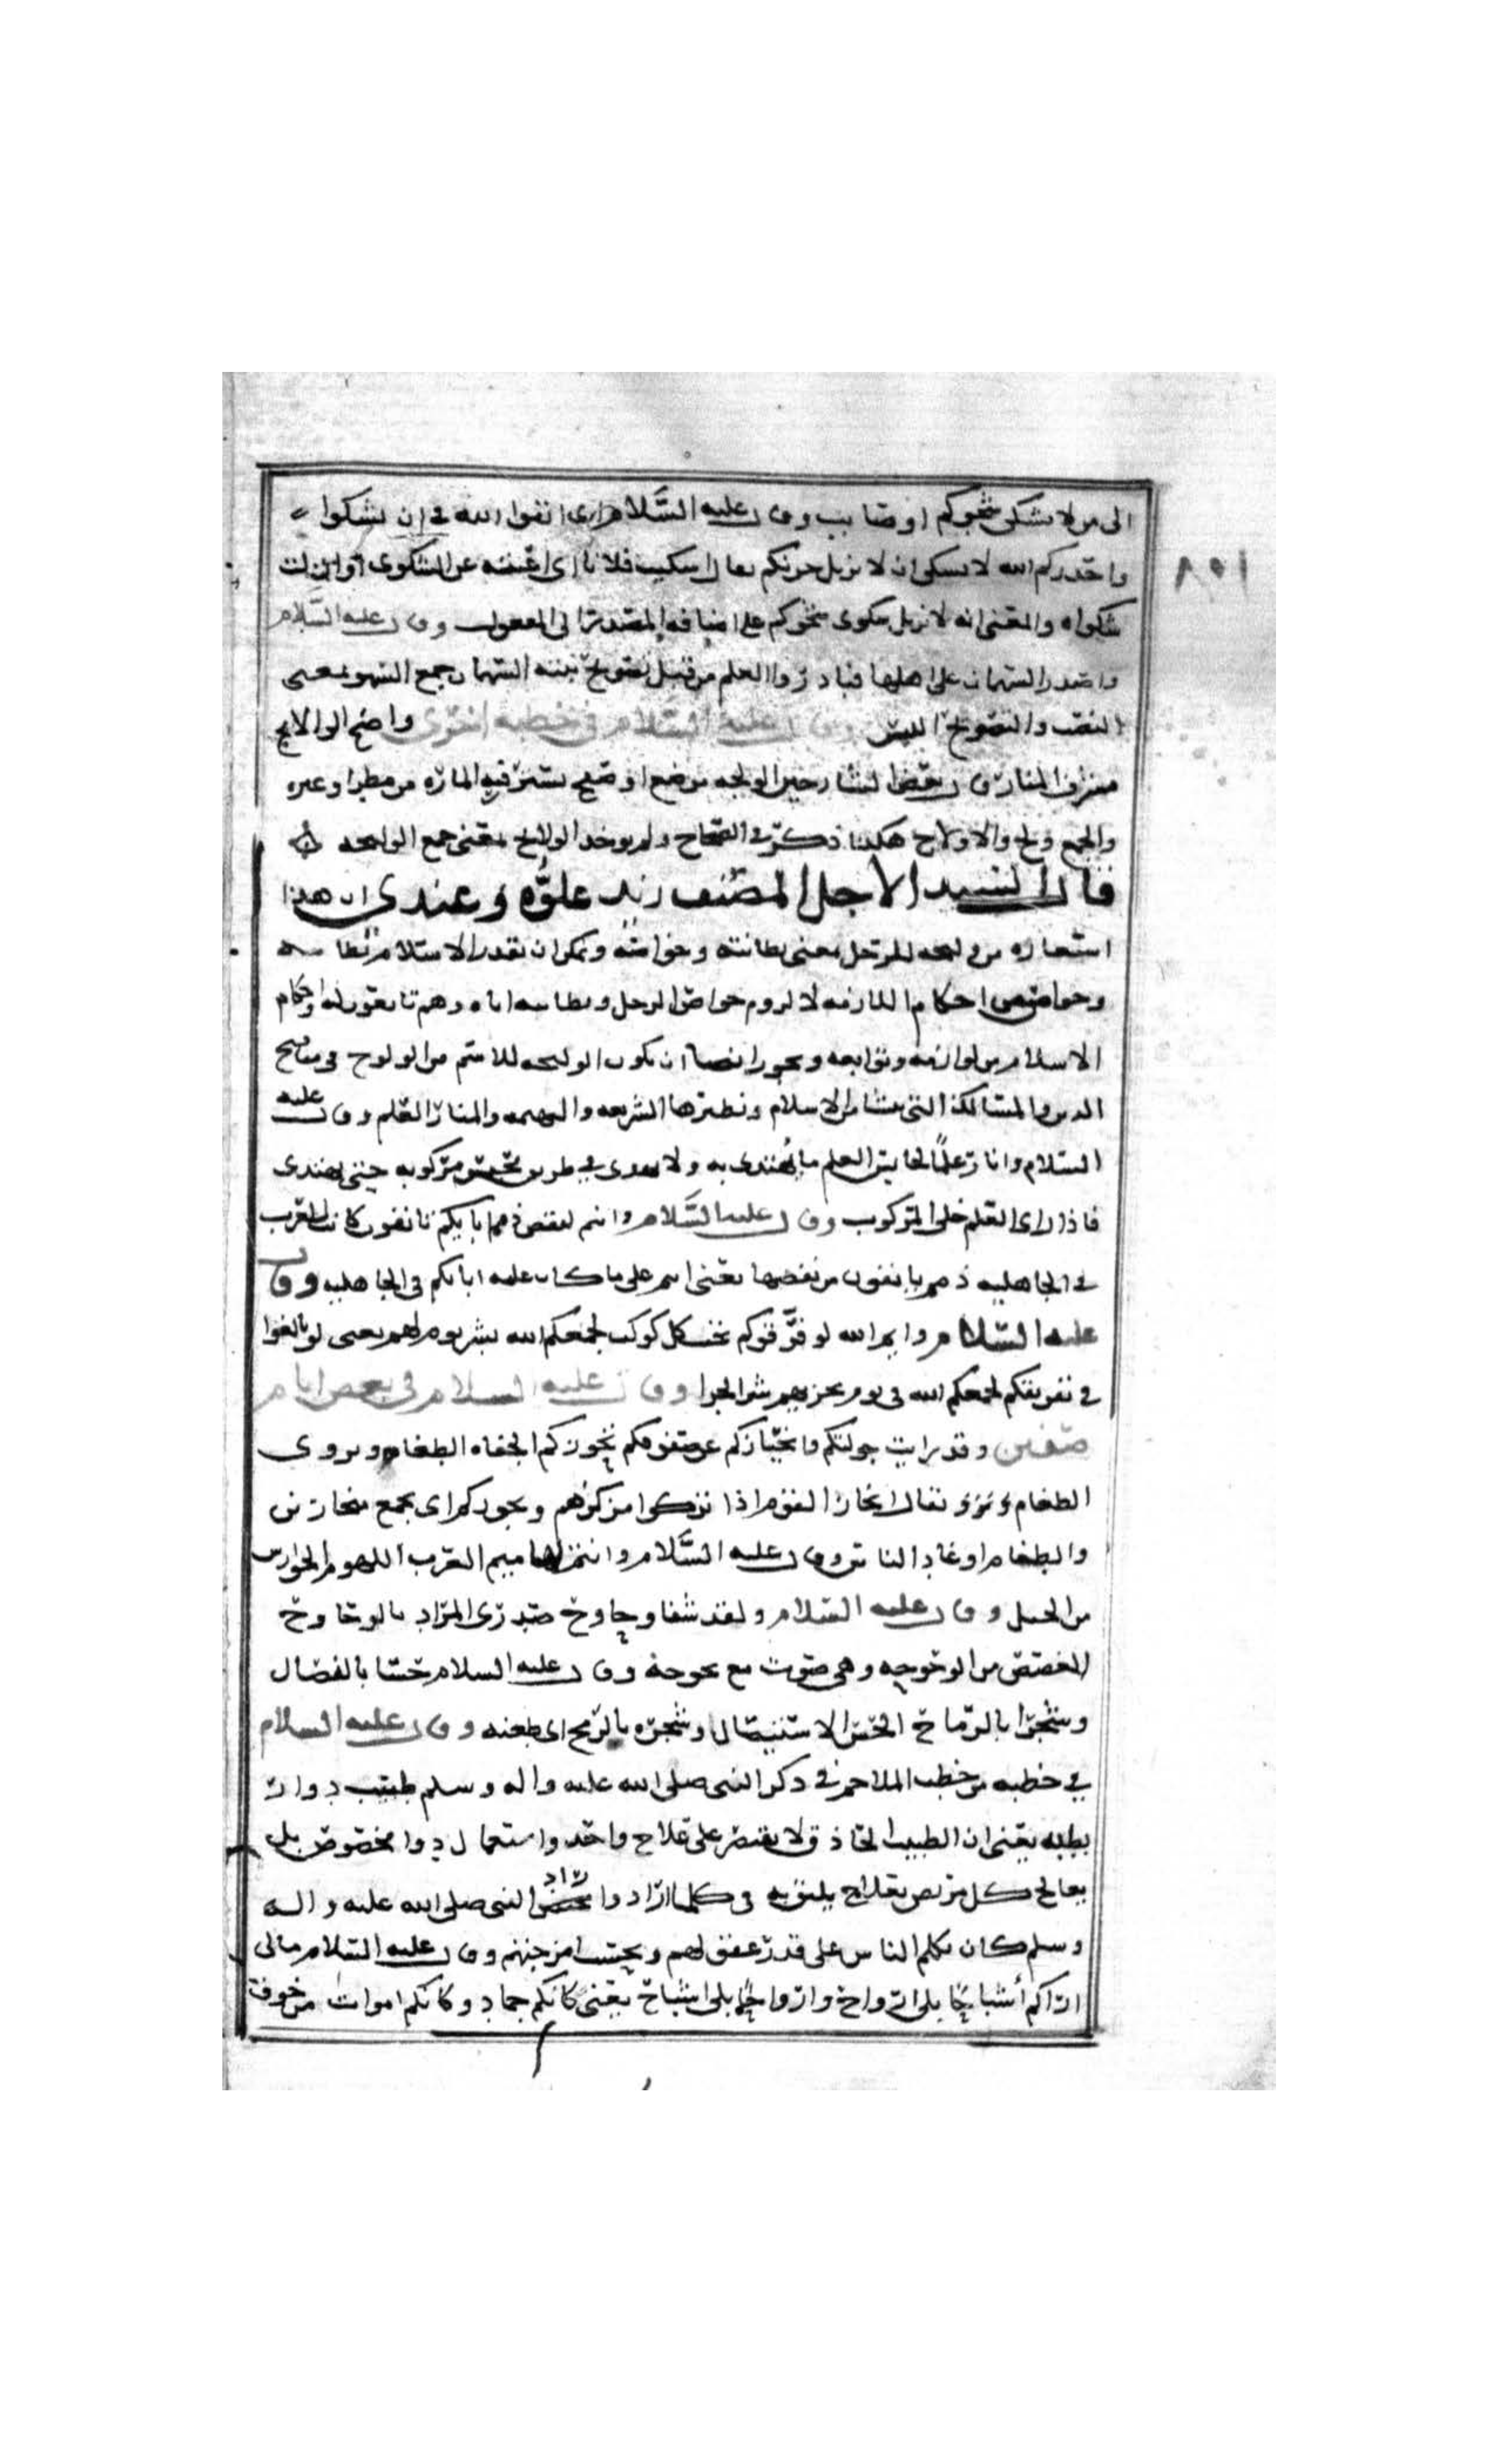 الى من لا يشكى شجوكم او صايب وقال عليه السلام اى اتقوا الله فى ان يشكوا
واحذركم الله لا يشكى ان لا يزيل حزنكم يقال اشكيت فلانا اى اعتبته عن الشكوى او ازلت
شكواه والمعنى انه لا يزيل شكوى شجوكم على اضافة المصدر الى المفعول وقال عليه السلام
على اهلها فبادروا العلم من قبل تصويح نبته جمع بمعنى
والتصويح اليبس وقال عليه السلام فى خطبة اخرى واضح الولايج
مشرف المنار قال بعض الشارحين الولجه موضع او يستتر فيه الماره من مطر او غيره
والجمع ولج والاولاج هكذا ذكر فى الصحاح ولم يوجد الولايج بمعنى جمع الولجه
قال السيد الاجل المصنف زيد علوه وعندى ان هذا
استعاره من وليجه الرجل بمعنى بطانته وخواصه ويمكن ان تقدر الاسلام
احكام اللازمه لا لزوم خواص الرجل وبطانته اياه وهم تابعون له واحكام
الاسلام من لوازمه وتوابعه ويجوز ايضا ان يكون الوليجه للاسم من الولوج فى مناهج
الدين والمسالك التى الاسلام ونظيرها الشريعه والمنار العلم وقال عليه
السلام وانار علما لحابس العلم ما يهتدى به ولا يهدى فى طريق تحبس مركوبه حتى يهتدى
فاذا راى العلم خلى المركوب وقال عليه السلام وانتم لنقض ذمم ابايكم تانفون كانت العرب
فى الجاهليه ذمم يانفون من نقضها يعنى انتم على ما كان عليه ابايكم فى الجاهليه وقال
عليه السلام وايم الله لو فرقوكم تحت كل كوكب لجمعكم الله لشر يوم لهم يعنى لو بالغوا
فى تفريقكم لجمعكم الله فى يوم يجزيهم شر الجزا وقال عليه السلام فى بعض ايام
صفين وقد رايت جولتكم وانحيازكم عن صفوفكم تحوزكم الجفاه الطغام ويروى
الطغام يقال انحاز القوم اذا تركوا مركزهم ويحوزكم اى يجمع
والطغام اوغاد الناس وقال عليه السلام وانتم لهاميم العرب اللهموم الجواد
من الخيل وقال عليه السلام ولقد شفا وحاوح صدرى المراد بالوحاوح
الغصص من الوحوحه وهى صوت مع بحوحه وقال عليه السلام حسا بالنصال
وشجرا بالرماح الحس الاستيصال وشجره بالرمح اى طعنه وقال عليه السلام
فى خطبه من خطب الملاحم فى ذكر النبى صلى الله عليه واله وسلم طبيب دوار
بطبه يعنى ان الطبيب الحاذق لا يقتصر على علاج واحد واستعمال دوا مخصوص بل
يعالج كل مريض بعلاج يليق به النبى صلى الله عليه واله
وسلم كان يكلم الناس على قدر عقولهم وقال عليه السلام مالى
اراكم أشباحا بلى ارواح وارواحا بلى اشباح يعنى كانكم جماد وكانكم اموات من خوف